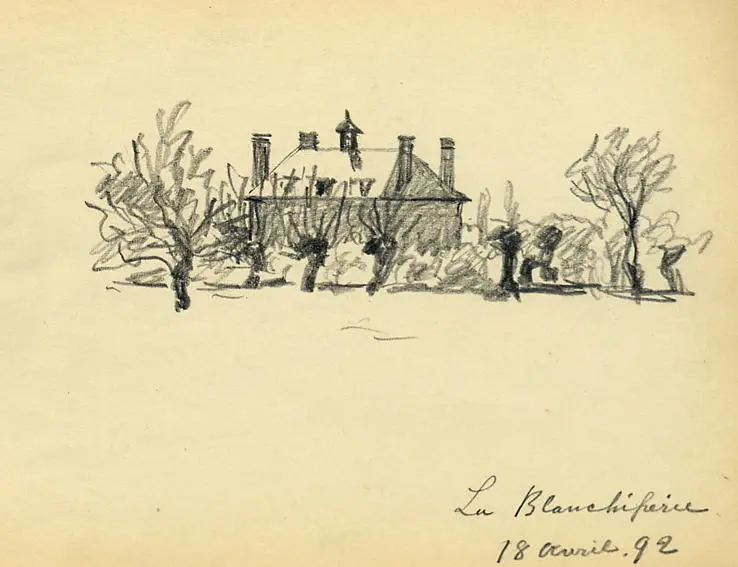 La Blanchisserie
18 avril. 92